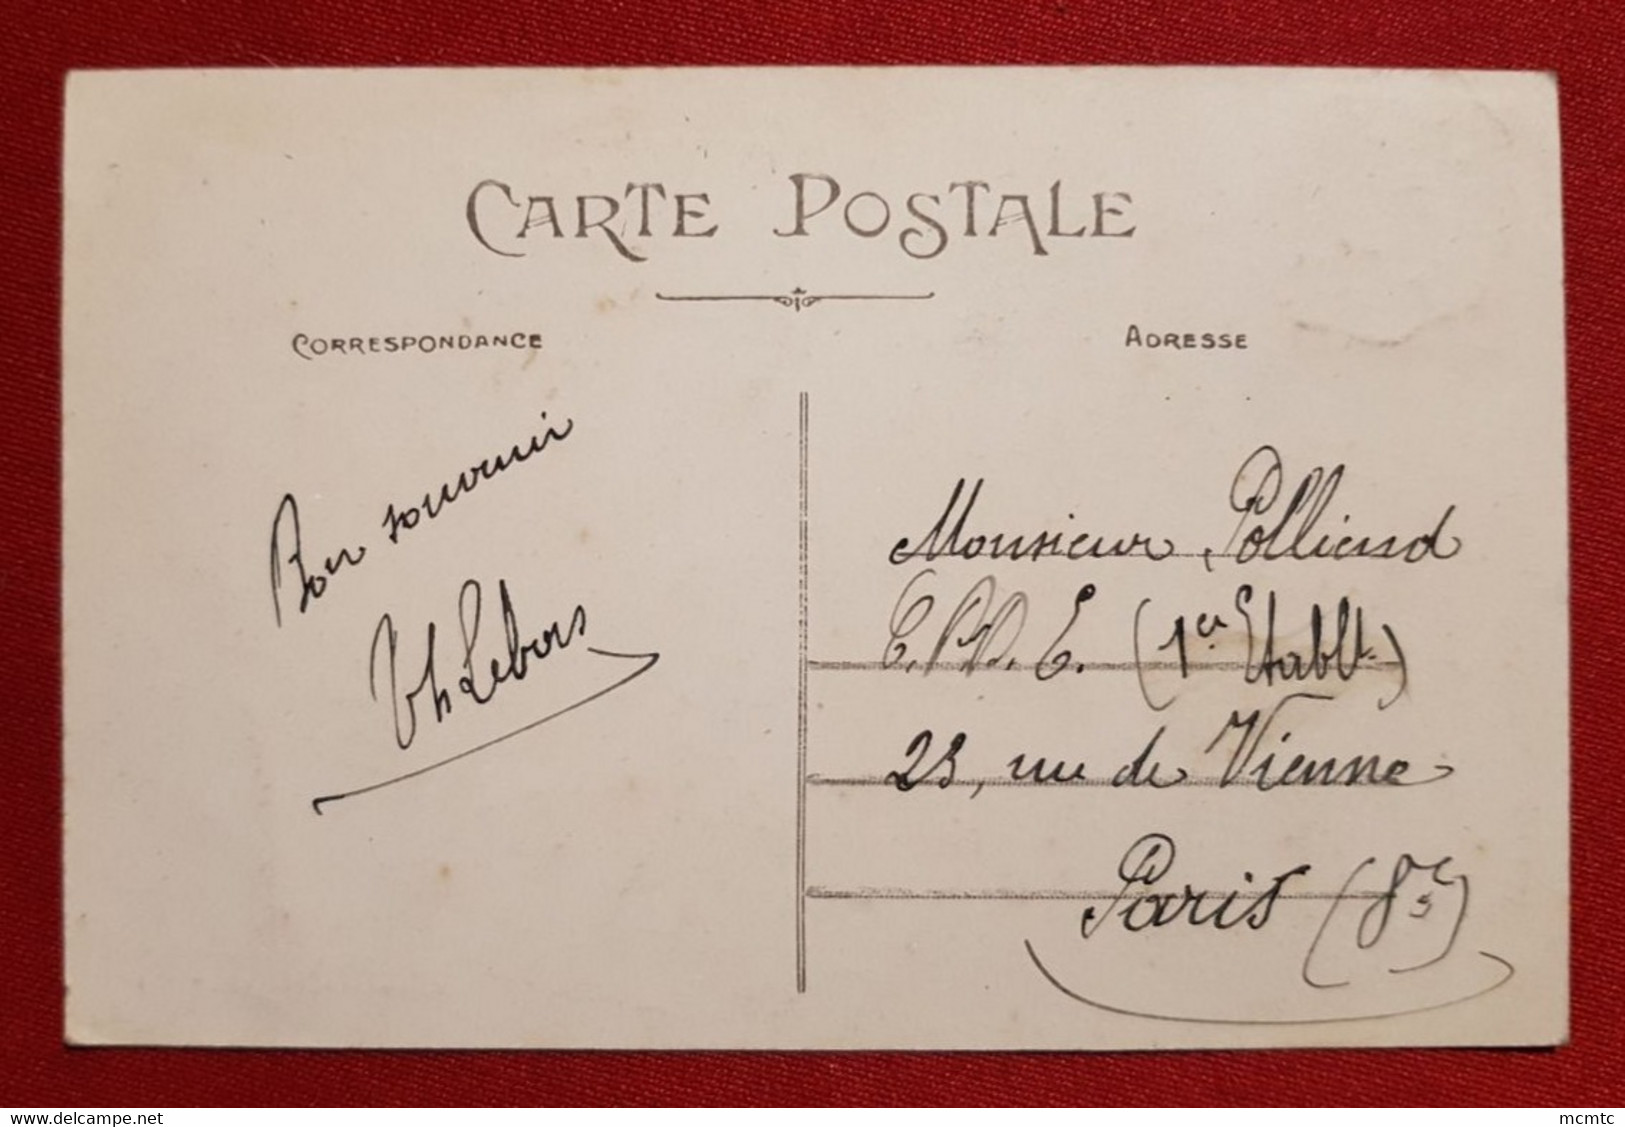 CARTE POSTALE
CORRESPONDANCE
ADRESSE
Bon souvenir
Th Lebois
Monsieur Polliand
(1er Etablt.)
23, rue de Vienne
Paris (8e)
delcampe.net
mcmtc